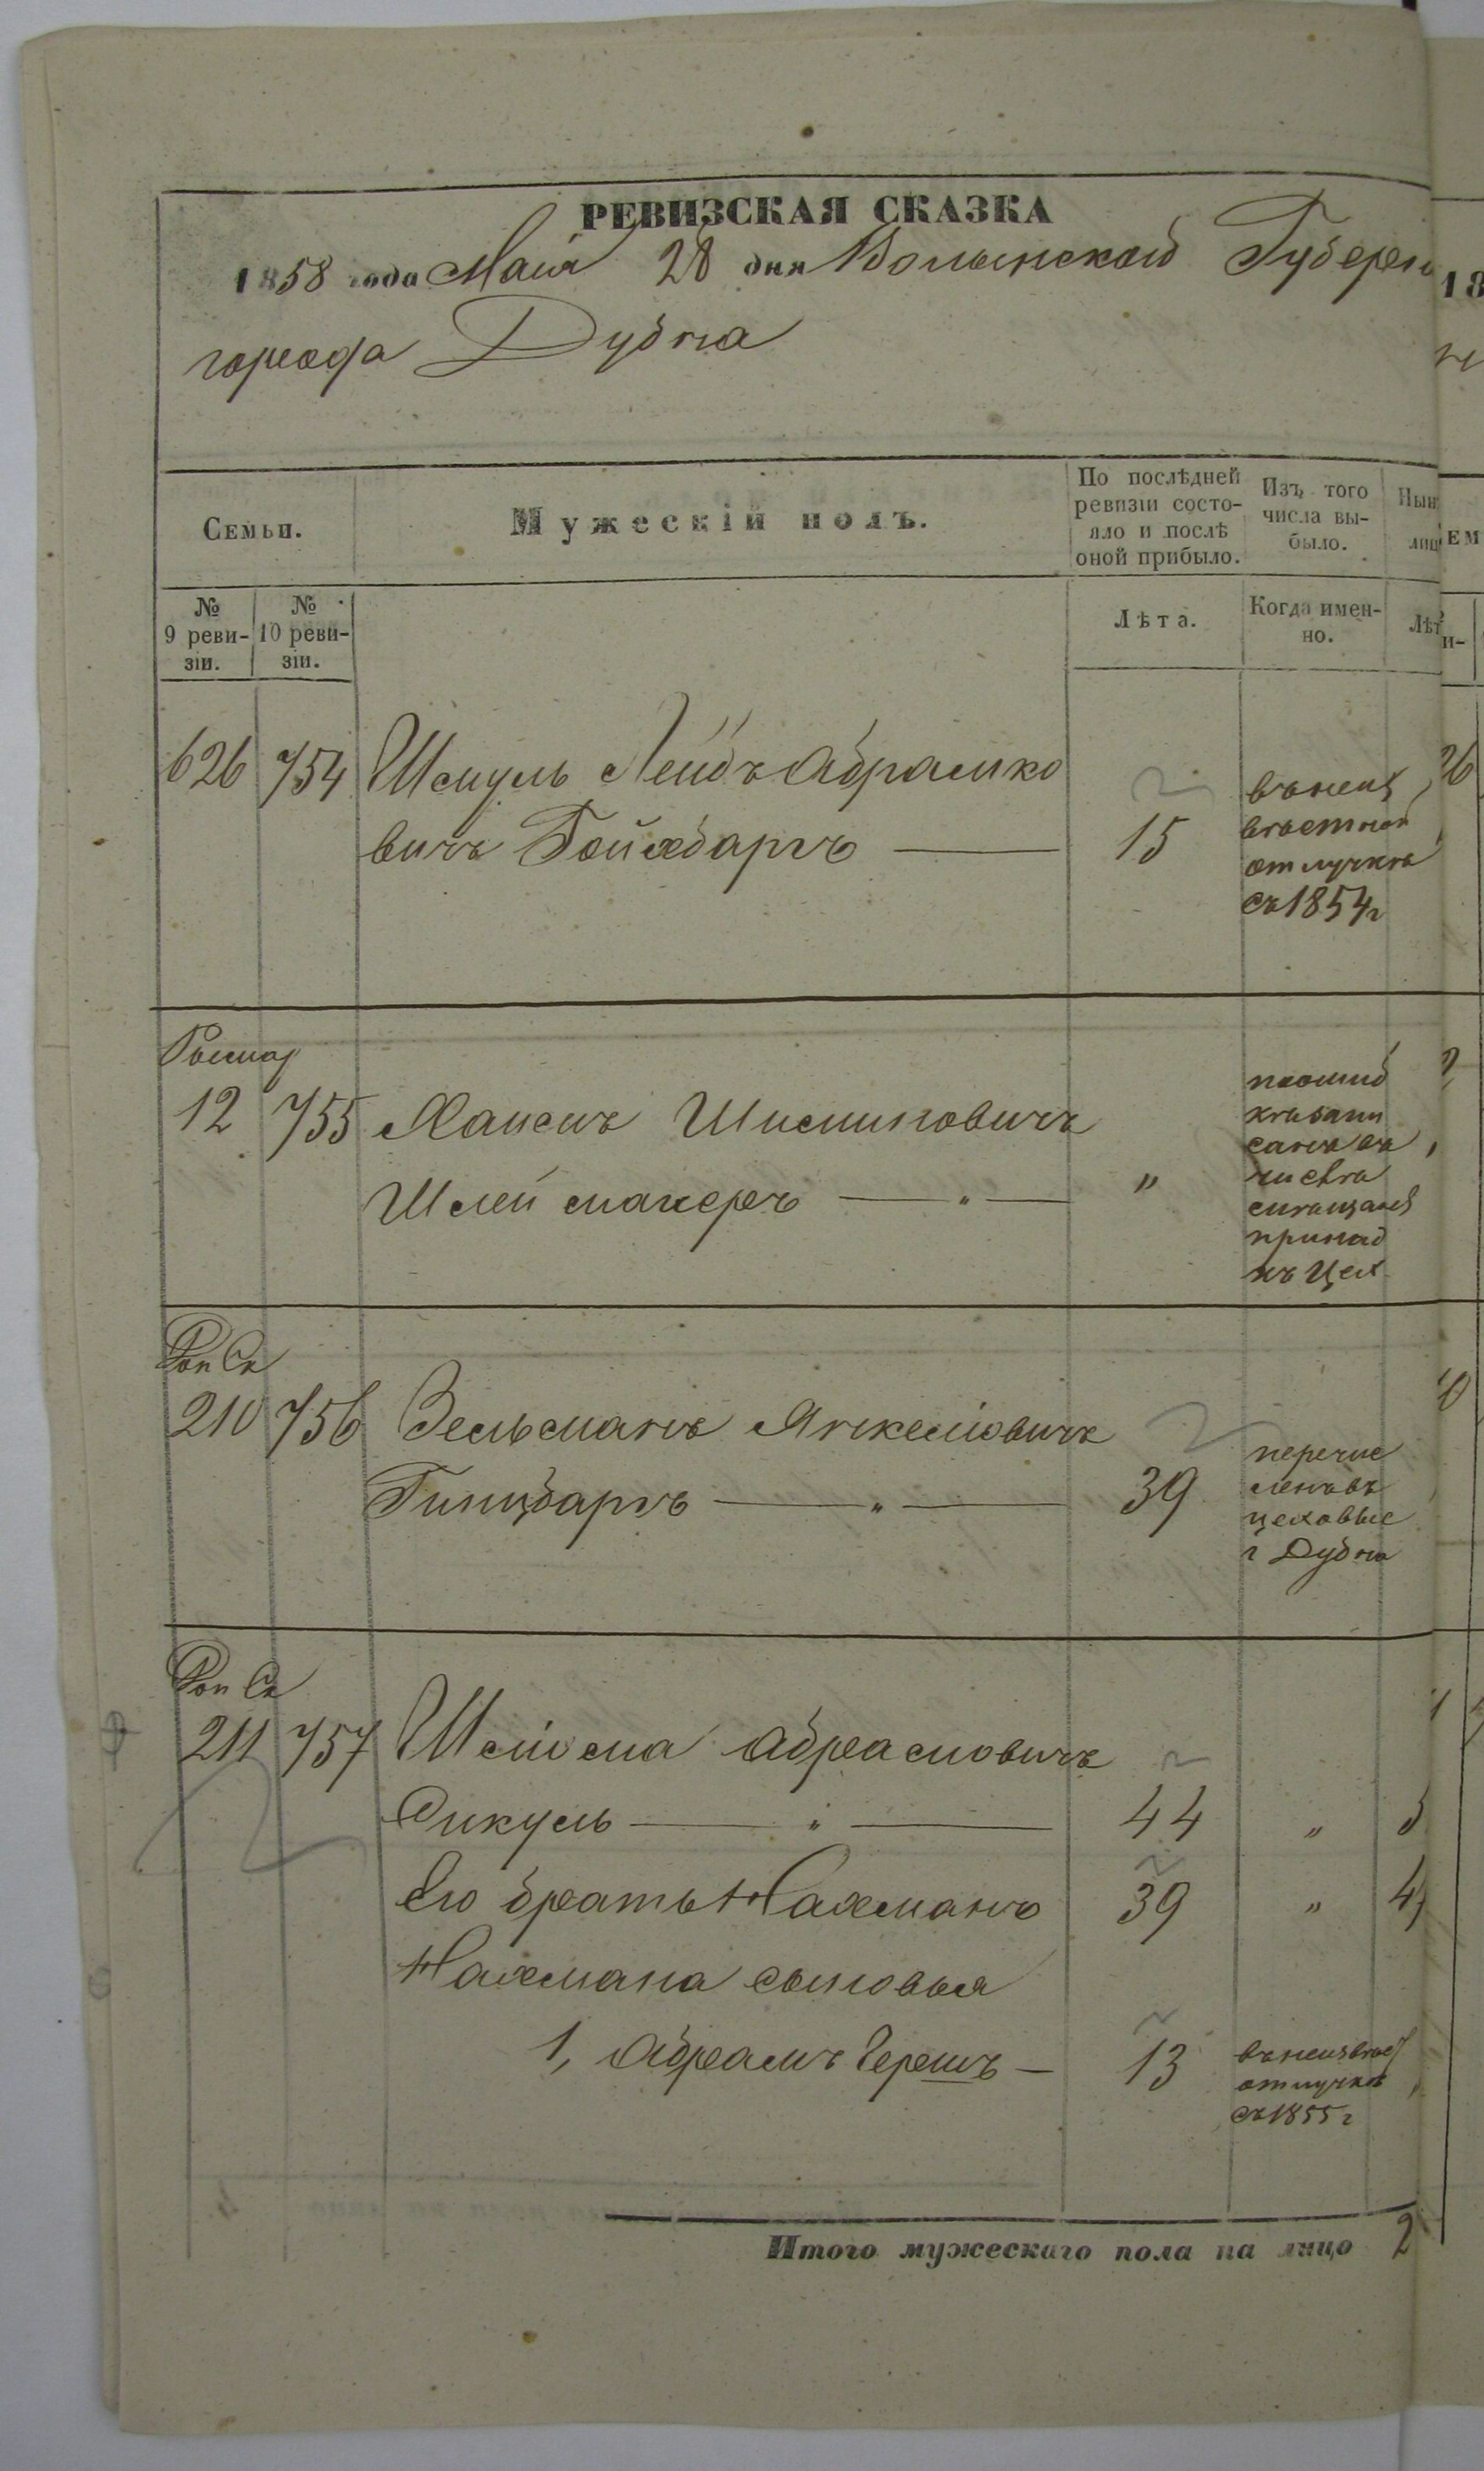 РЕВИЗСКАЯ СКАЗКА
1858 года Маія 28 дня Волынской Губерн
города Дубна
Семьи.
Мужескій полъ.
По послѣдней ревизіи состо-
яло и послѣ
оной прибыло.
Изъ того
числа вы-
было.
Нын
лиц
№
9 реви-
зіи.
№
10 реви-
зіи.
Лѣта.
Когда имен-
но.
Лѣт
626 754 Шмуль Лейбъ Абрамко
вичъ Гойхбаргъ — 15
въ неиз
вѣстной
отлучкѣ
съ 1854 г
12 755 Хаимъ Шмилиовичъ
Шлеймахеръ — „ — „
санъ въ
числѣ
къ Цех
210 756 Зельманъ Янкелiовичъ
Гинцбаргъ — „ — 39
перечис
ленъ въ
цеховые
г Дубна
211 757 Шлiома Абрамовичъ
Сикуль — „ — 44 „
Его братъ Нахманъ 39 „
Нахмана сыновья
1, Абрамъ Гершъ — 13
въ неизвѣс
отлучкѣ
съ 1855 г
Итого мужескаго пола на лицо 2